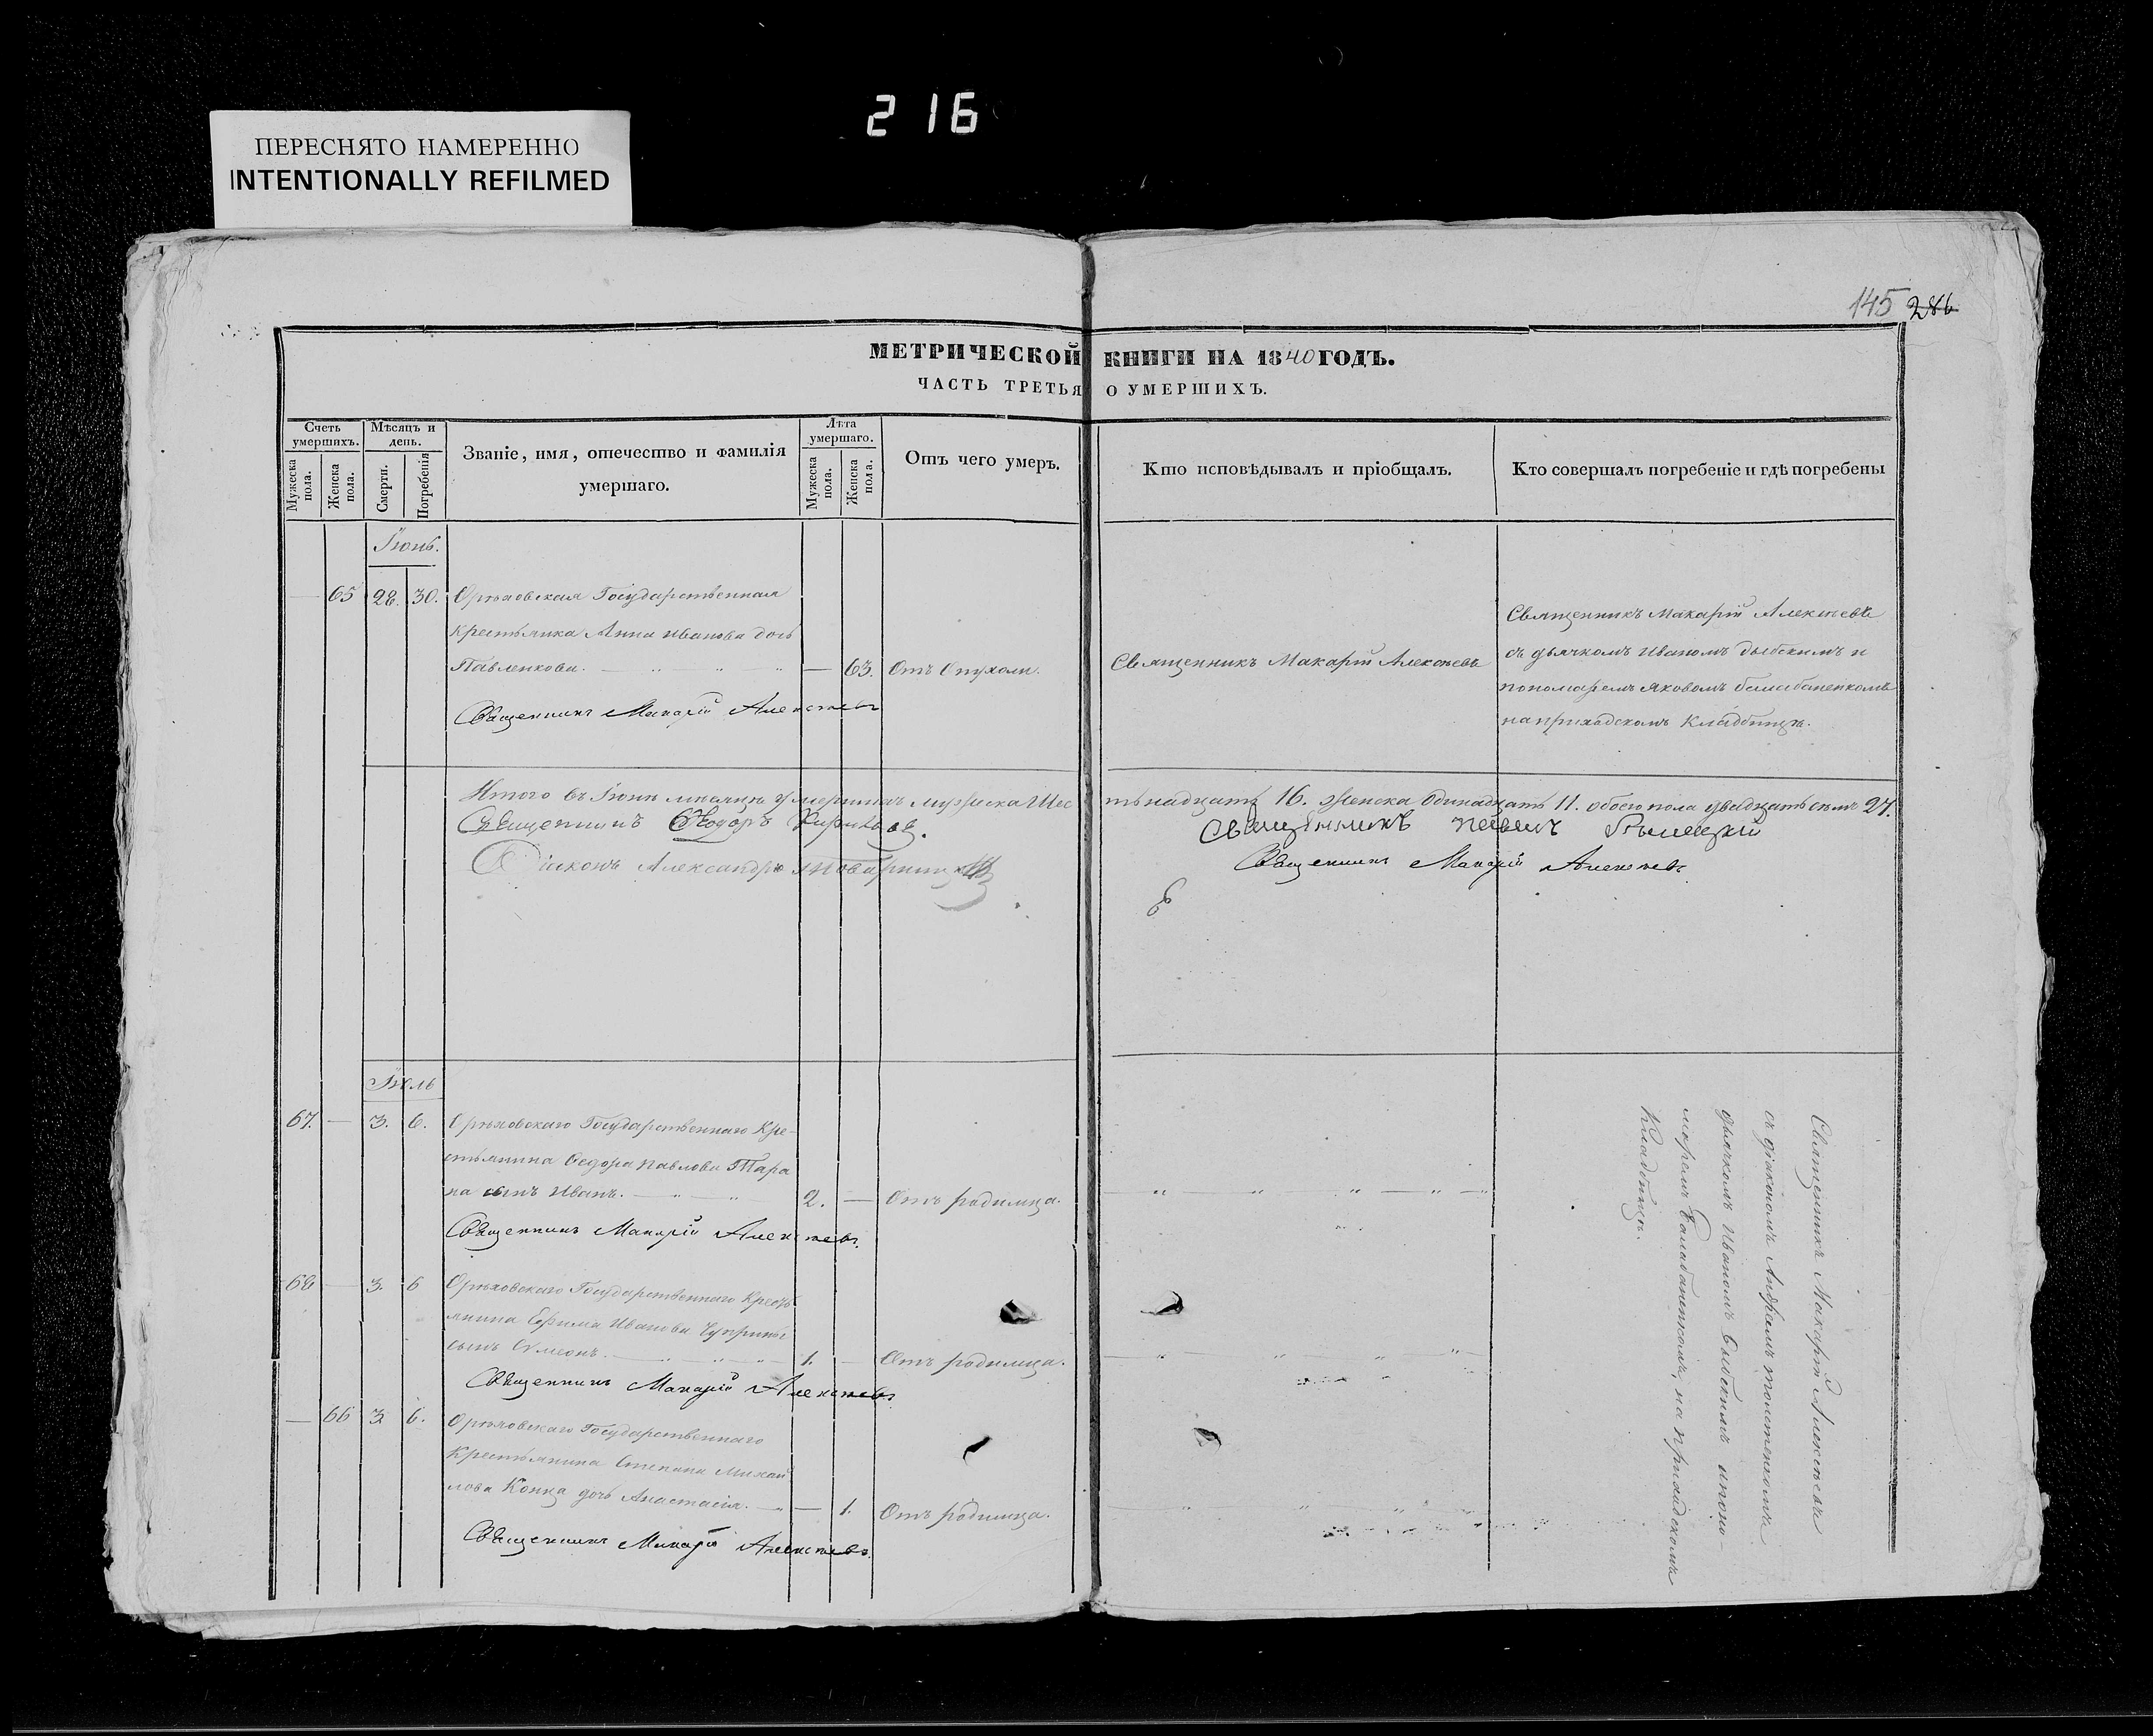 216
ПЕРЕСНЯТО НАМЕРЕННО
INTENTIONALLY REFILMED
145 286
МЕТРИЧЕСКОЙ КНИГИ НА 1840 ГОДЪ.
ЧАСТЬ ТРЕТЬЯ О УМЕРШИХЪ.
Счетъ умершихъ.
Мужеска пола.
Женска пола.
Мѣсяцъ и день.
Смерти.
Погребенія
Званіе, имя, отечество и фамилія
умершаго.
Лѣта умершаго.
Мужеска пола.
Женска пола.
Отъ чего умеръ.
Кто исповѣдывалъ и пріобщалъ.
Кто совершалъ погребеніе и гдѣ погребены
Іюнь.
65 28. 30. Орѣховская Государственная
крестьянка Анна Иванова дочь
Павленкова. — 63. Отъ Опухоли.
Священникъ Макарій Алексѣевъ
Священникъ Макарій Алексѣевъ
Священникъ Макарій Алексѣевъ
съ дьячкомъ Иваномъ и
пономаремъ Яковомъ Балабаненкомъ
на приходскомъ кладбищѣ.
Итого въ Іюнѣ мѣсяцѣ умершихъ мужеска Шес
тьнадцать 16. женска Одинадцать 11. обоего пола двадцать семь 27.
Священникъ Ѳеодоръ
Священникъ Павелъ
Діаконъ Александръ
Священникъ Макарій Алексѣевъ
Іюль
67. — 3. 6. Орѣховскаго Государственнаго Кре-
стьянина Ѳедора Павлова Тара
на сынъ Иванъ. 2. — Отъ родимца.
Священникъ Макарій Алексѣевъ.
68 — 3. 6 Орѣховскаго Государственнаго Кресть
янина Ефима Иванова Чуприны
сынъ Сѵмеонъ. 1. — Отъ родимца.
Священникъ Макарій Алексѣевъ
— 66 3 6. Орѣховскаго Государственнаго
Крестьянина Степана Михай
лова Конка дочь Анастасія. — 1. Отъ родимца.
Священникъ Макарій Алексѣевъ.
Священникъ Макарій Алексѣевъ
съ діакономъ Андреемъ Толстенкомъ
дьячкомъ Иваномъ и поно-
маремъ Балабаненкомъ, на приходскомъ
Кладбищѣ.